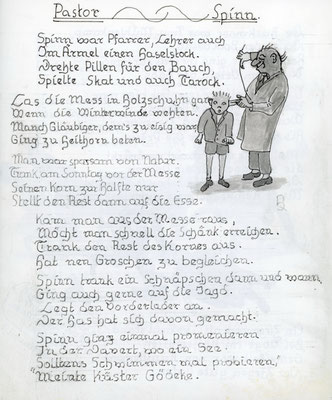 Pastor Spinn.
Spinn war Pfarrer, Lehrer auch
Im Ärmel einen Haselstock.
Drehte Pillen für den Bauch,
Spielte Skat und auch Tarock.
Las die Mess in Holzschuhn gar
Wenn die Winterwinde wehten.
Manch Gläubiger, dem's zu eisig war
Ging zu Heithorn beten.
Man war sparsam von Natur.
Trank am Sonntag vor der Messe
Seinen Korn zur Hälfte nur
Stellt den Rest dann auf die Esse.
Kam man aus der Messe raus,
Möcht man schnell die Schänk erreichen.
Trank den Rest des Kornes aus.
Hat nen Groschen zu begleichen.
Spinn trank ein Schnäpschen dann und wann
Ging auch gerne auf die Jagd.
Legt den Vorderlader an.
Der Has hat sich davon gemacht.
Spinn ging einmal promenieren
In der Davert, wo ein See.
Sollten's Schwimmen mal probieren,"
"Meinte Küster Gödeke.